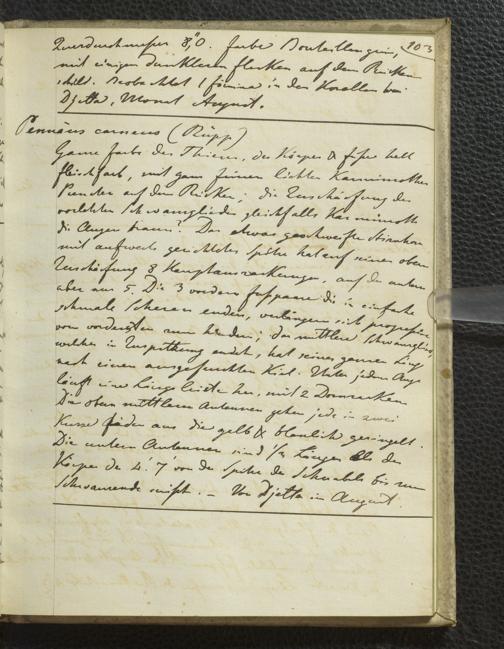 103
Querdurchmesser 8,"0. farbe Bouteillengrün,
mit einigen dunkleren flecken auf dem Rücken
schild. Beobachtet in den Korallen bei
Djetta, Monat August.
Pennäus carneus (Rüpp)
Ganze farbe des Thieres, des Körpers & füsse hell
fleischfarb, mit ganz feinen lichten Karminrothen
Puncten auf dem Rücken; die Zuschärfung des
vorletzten Schwanzgliedes gleichfalls Karminroth
die Augen braun? Das etwas geschweifte Stirnhorn
mit aufwerts gerichteter Spitze hat auf seiner obern
Zuschärfung 8 auf der untern
aber nur 5. Die 3 vordern fusspaare die in einfache
schmale Scheeren enden, verlängern sich progressiv
vom vordersten zum hinden; das mittlere Schwanzglied,
welches in Zuspitzung endet, hat seiner ganzen Länge
nach einen ausgefurchten Kiel. Unter jedem Auge
läuft eine Längsleiste her, mit 2 Dornzacken
Die obern mittlern Antennen gehen jede in zwei
Kurze fäden aus die gelb & blaulich geringelt.
Die untern Antennen sind 1/2 länger als der
Körper der 4.' 7' von der Spitze des Schnabels bis zum
Schwanzende misst. – Von Djetta im August.